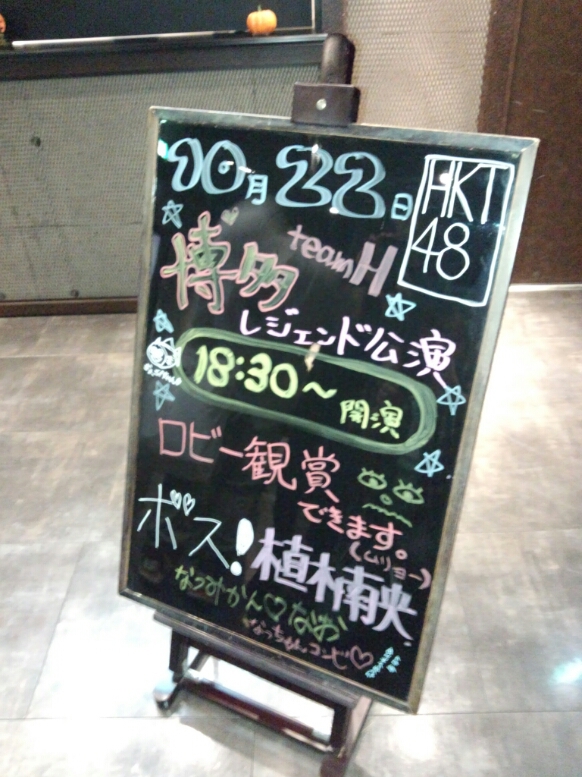 10月22日
HKT
48
teamH
博多
レジェンド公演
18:30〜
開演
ロビー観賞
できます。
(ムリョー)
ボス!
植木南央
なつみかん♡なお
なっちゃんコンビ♡